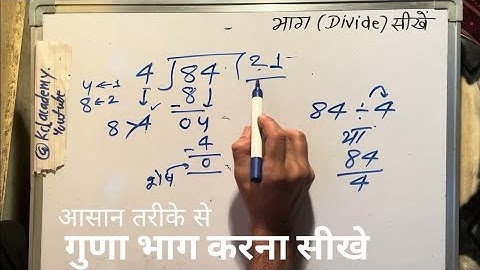 भाग (Divide) सीखें
@kclacademy.
Youtube
4←1
8←2
8
4
4 ) 84 ( 21
8
04
4
0
शेष
84 ÷ 4
या
84
4
आसान तरीके से
गुणा भाग करना सीखे